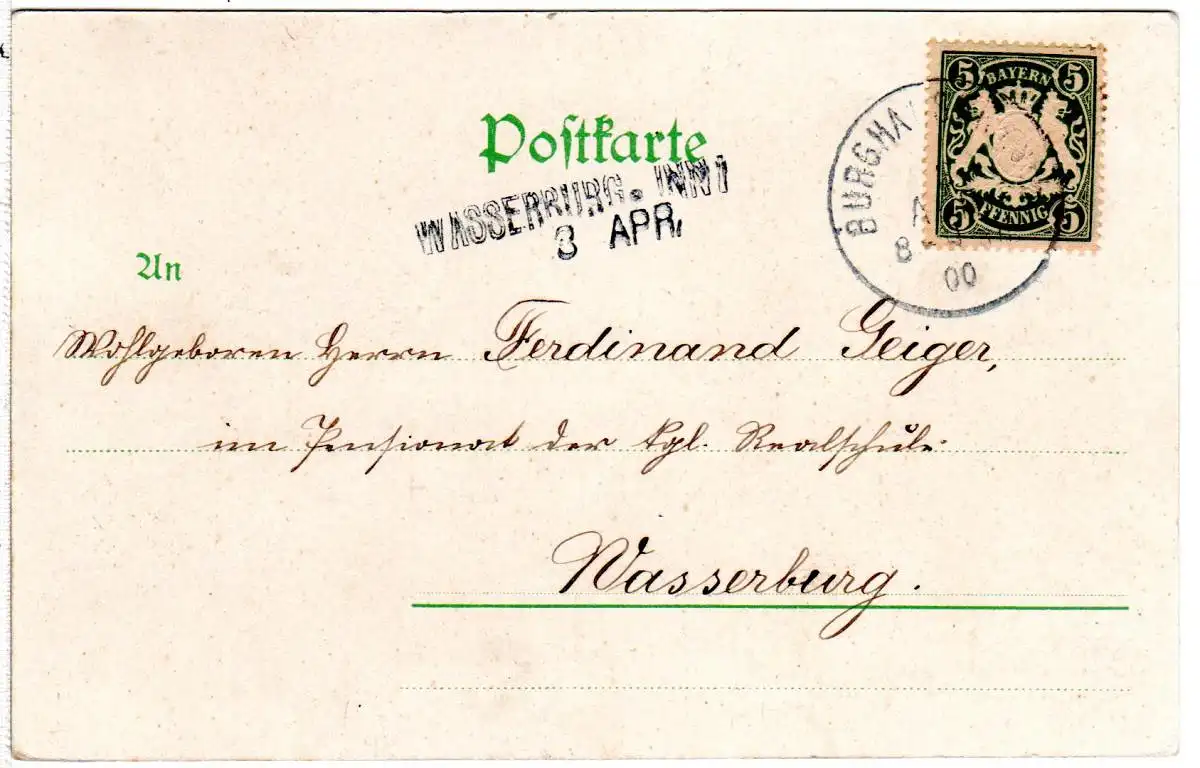 5 BAYERN 5
5 PFENNIG 5
Postkarte
WASSERBURG. INN 1
3 APR.
00
An
Wohlgeboren Herrn Ferdinand Geiger,
im Pensionat der kgl. Realschule
Wasserburg.